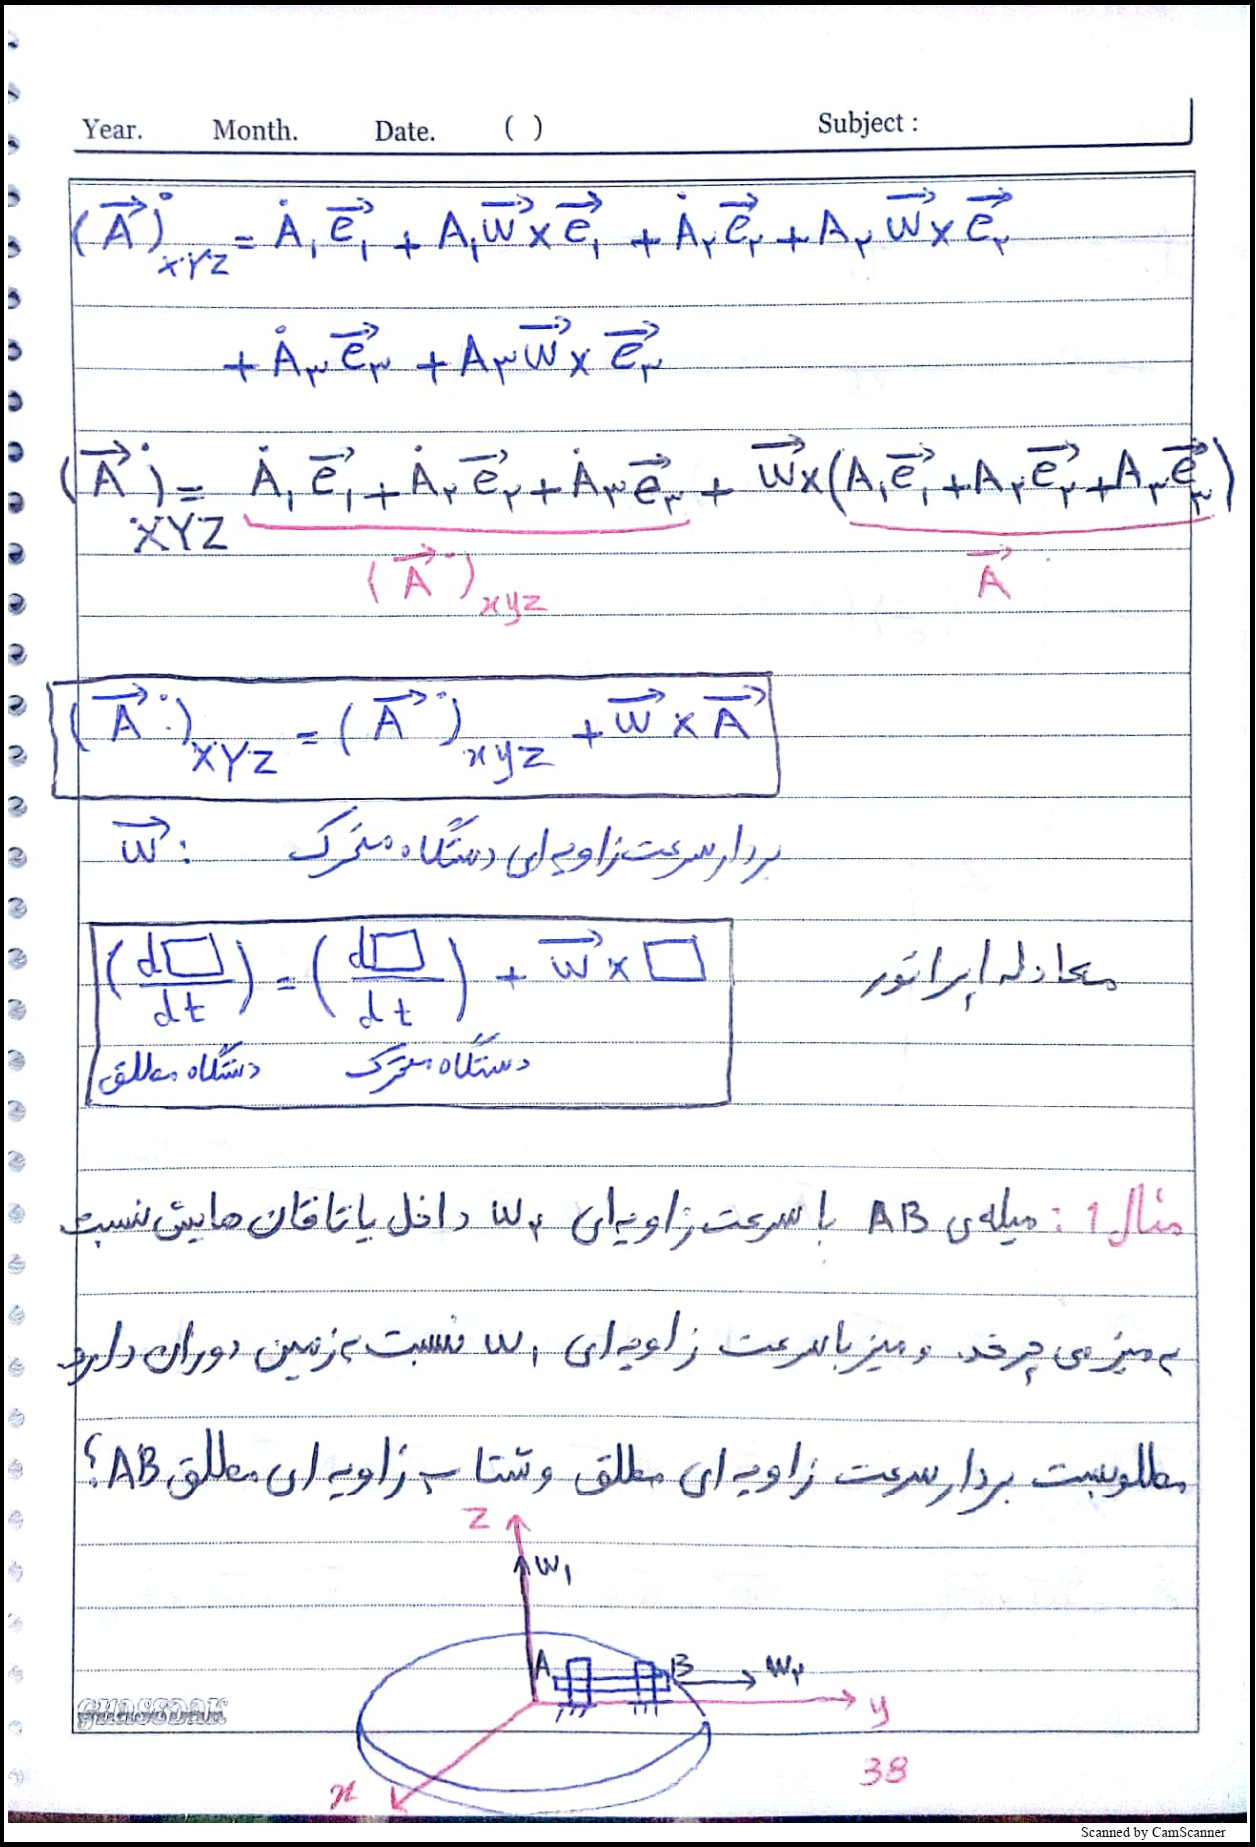 Year. Month. Date. ( ) Subject :
(A⃗)˙_XYZ = Ȧ₁ e⃗₁ + A₁ w⃗ × e⃗₁ + Ȧ۲ e⃗۲ + A۲ w⃗ × e⃗۲
+ Ȧ۳ e⃗۳ + A۳ w⃗ × e⃗۳
(A⃗˙)_XYZ = Ȧ₁ e⃗₁ + Ȧ۲ e⃗۲ + Ȧ۳ e⃗۳ + w⃗ × (A₁ e⃗₁ + A۲ e⃗۲ + A۳ e⃗۳)
(A⃗˙)_xyz A⃗
(A⃗˙)_XYZ = (A⃗˙)_xyz + w⃗ × A⃗
w⃗ : بردار سرعت زاویه ای دستگاه متحرک
(d□/dt) = (d□/dt) + w⃗ × □ معادله اپراتور
دستگاه مطلق دستگاه متحرک
مثال 1 : میله ی AB با سرعت زاویه ای w۲ داخل یاتاقان هایش نسبت
به میز می چرخد. و میز با سرعت زاویه ای w₁ نسبت به زمین دوران دارد
مطلوبست بردار سرعت زاویه ای مطلق و شتاب زاویه ای مطلق AB؟
z
w₁
A B w۲
y
x
38
GHASSDAK
Scanned by CamScanner